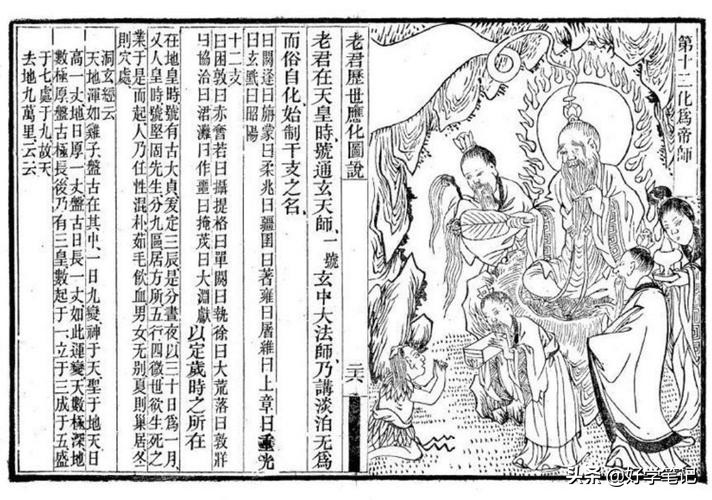 第十二化為帝師
老君歷世應化圖說
二六
老君在天皇時號通玄天師、一號玄中大法師、乃講淡泊无爲
而俗自化、始制干支之名、
曰閼逢曰旃蒙曰柔兆曰疆圉曰著雍曰屠維曰上章曰重光
曰玄黓曰昭陽
十二支
曰困敦曰赤奮若曰攝提格曰單閼曰執徐曰大荒落曰敦牂
曰協洽曰涒灘曰作噩曰掩茂曰大淵獻 以定歲時之所在
在地皇時號有古大貞爰定三辰是分晝夜以三十日爲一月、
又人皇時號堅固先生分九區居方所五行四徵世欲生死之
業于是而起人乃任性混朴茹毛飲血男女无別夏則巢居冬
則穴處、
洞玄經云
天地渾如雞子盤古在其中一日九變神于天聖于地天日
高一丈地日厚一丈盤古日長一丈如此運變天數極深地
數極厚盤古極長後乃有三皇數起于一立于三成于五盛
于七處于九故天
去地九萬里云云
头条 @好学笔记